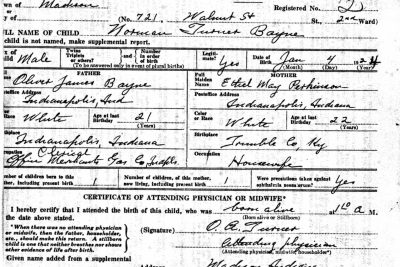 wn of Madison Registered No. 2
(No. 721, Walnut St St., 2nd Ward)
LL NAME OF CHILD Norman Turner Bayne
child is not named, make supplemental report.
Male Twins Triplets or others? and Number in order of birth Legiti-mate? Yes Date of Birth Jan 4 192
(To be answered only in event of plural births)
FATHER MOTHER
Oliver James Bayne Full Maiden Name Ethel May Perkinson
Postoffice Address Postoffice Address
Indianapolis, Ind Indianapolis, Indiana
White Age at last birthday 21 (Years) Color or Race White Age at last birthday 22 (Years)
Birthplace
Indianapolis, Indiana Trimble Co, Ky
Occupation
Clerical Housewife
Office Merchants Gas Co
mber of children born to this
ther, including present birth 1 Number of children, of this mother, now living, including present birth 1 Were precautions taken against ophthalmia neonatorum? Yes
CERTIFICATE OF ATTENDING PHYSICIAN OR MIDWIFE*
I hereby certify that I attended the birth of this child, who was born alive at 1 a M.
the date above stated. (Born alive or Stillborn)
*When there was no attending physician or midwife, then the father, householder, etc., should make this return. A stillborn child is one that neither breathes nor shows other evidence of life after birth.
(Signature) O. A. Turner
Attending physician
(Attending physician, midwife, householder)
Given name added from a supplemental
Madison Indiana